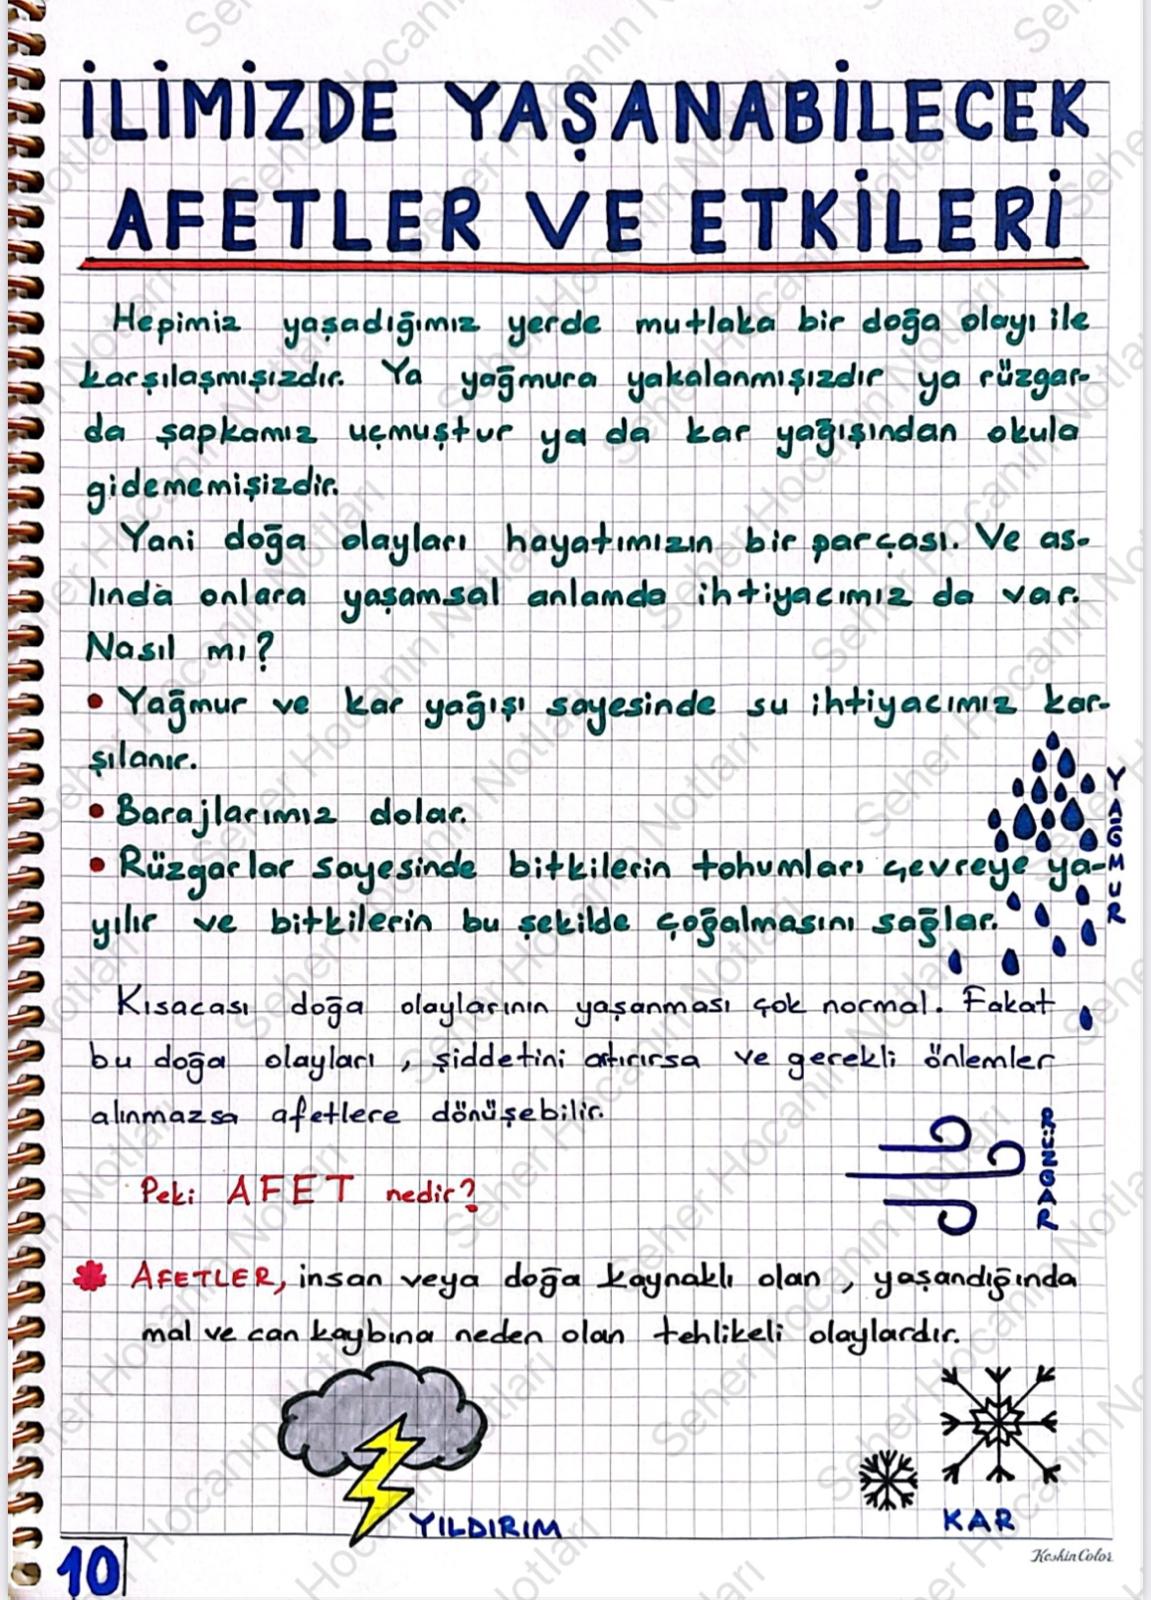 İLİMİZDE YAŞANABİLECEK
AFETLER VE ETKİLERİ
Hepimiz yaşadığımız yerde mutlaka bir doğa olayı ile
karşılaşmışızdır. Ya yağmura yakalanmışızdır ya rüzgar-
da şapkamız uçmuştur ya da kar yağışından okula
gidememişizdir.
Yani doğa olayları hayatımızın bir parçası. Ve as-
lında onlara yaşamsal anlamda ihtiyacımız da var.
Nasıl mı?
• Yağmur ve kar yağışı sayesinde su ihtiyacımız kar-
şılanır.
• Barajlarımız dolar.
• Rüzgarlar sayesinde bitkilerin tohumları çevreye ya-
yılır ve bitkilerin bu şekilde çoğalmasını sağlar.
YAĞMUR
Kısacası doğa olaylarının yaşanması çok normal. Fakat
bu doğa olayları, şiddetini artırırsa ve gerekli önlemler
alınmazsa afetlere dönüşebilir.
RÜZGAR
Peki AFET nedir?
AFETLER, insan veya doğa kaynaklı olan, yaşandığında
mal ve can kaybına neden olan tehlikeli olaylardır.
YILDIRIM
KAR
KeskinColor
10
Seher Hocanın Notları